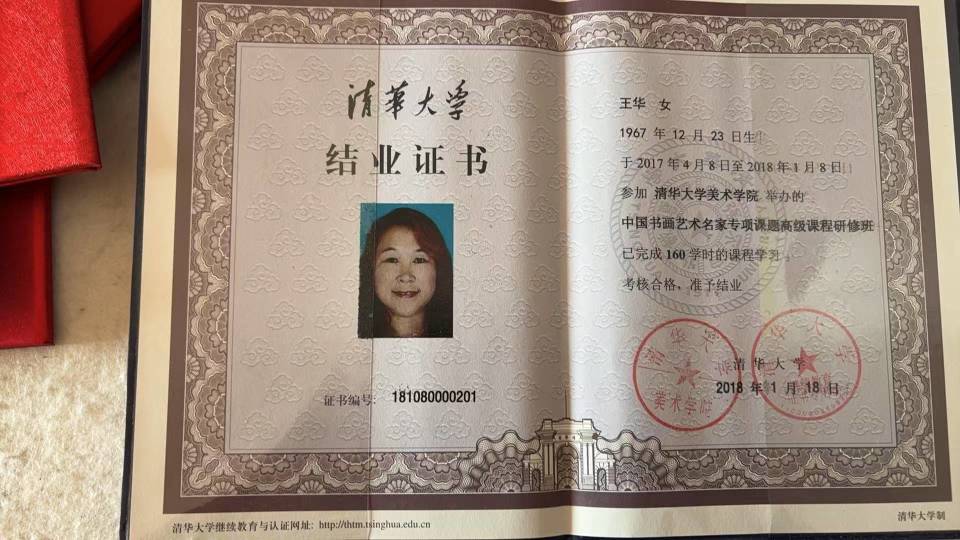 清华大学
结业证书
证书编号: 181080000201
王华 女
1967 年 12 月 23 日生
于 2017 年 4 月 8 日至 2018 年 1 月 8 日
参加 清华大学美术学院 举办的
中国书画艺术名家专项课题高级课程研修班
已完成 160 学时的课程学习。
考核合格，准予结业
清华大学
2018 年 1 月 18 日
清华大学
美术学院
清华大学
清华大学继续教育与认证网址: http://thtm.tsinghua.edu.cn
清华大学制